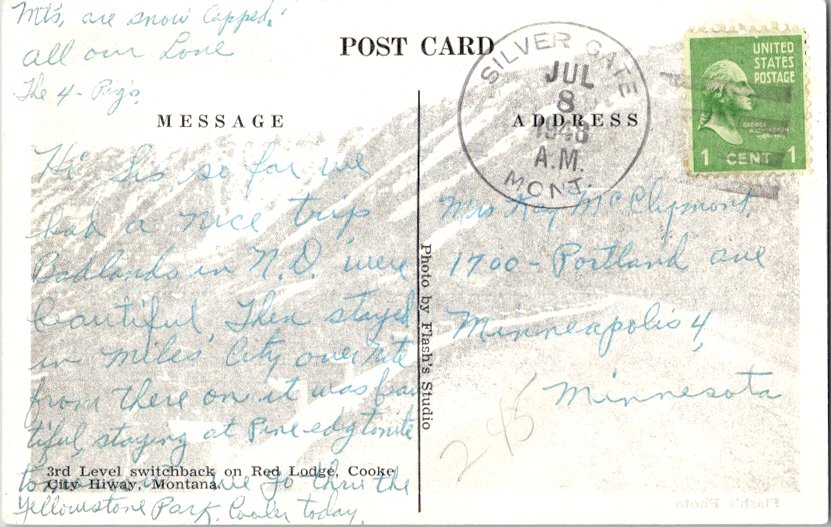 Mt's, are snow capped.
all our Love
The 4 - Pig's
POST CARD
SILVER GATE
JUL
8
1948
A.M.
MONT.
UNITED
STATES
POSTAGE
GEORGE
WASHINGTON
1 CENT 1
MESSAGE
ADDRESS
Hi Sis so far we
had a nice trip
Badlands in N.D. were
beautiful Then stayed
in Miles City over nite
from there on it was beau
tiful, staying at Pine edg tonite
go thru the
Yellowstone Park. Cooler today.
3rd Level switchback on Red Lodge, Cooke
City Hiway, Montana.
Photo by Flash's Studio
Mrs Ray McClymont,
1700 - Portland ave
Minneapolis 4,
Minnesota
245
Flash's Photo